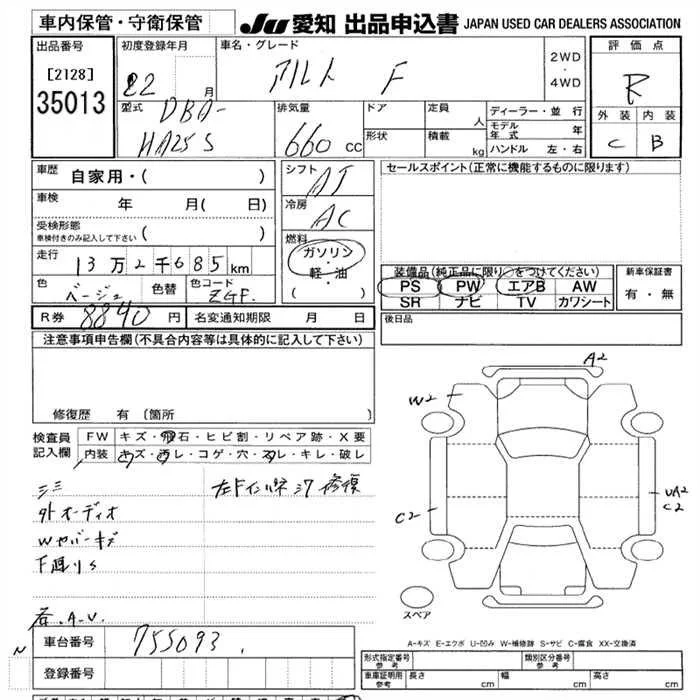 車内保管・守衛保管
JU 愛知 出品申込書 JAPAN USED CAR DEALERS ASSOCIATION
出品番号
[2128]
35013
初度登録年月
22 月
車名・グレード
アルト F
2WD
・
4WD
評価点
R
外装 内装
C B
型式
DBA-
HA25S
排気量
660 cc
ドア
形状
定員 人
積載 kg
ディーラー・並行
モデル年式 年
ハンドル 左・右
車歴 自家用・( )
車検 年 月( 日)
受検形態
車検付きのみ記入して下さい ( )
走行 13万2千685km
色 ベージュ 色替 色コード ZGF.
シフト AT
冷房 AC
燃料
ガソリン
・
軽・油
( )
R券 8840 円 名変通知期限 月 日
セールスポイント(正常に機能するものに限ります)
装備品(純正品に限り○をつけてください)
PS PW エアB AW
SR ナビ TV カワシート
新車保証書
有・無
後日品
注意事項申告欄(不具合内容等は具体的に記入して下さい)
修復歴 有 〔箇所
検査員
記入欄
FW キズ・飛石・ヒビ割・リペア跡・X要
内装 キズ・汚レ・コゲ・穴・スレ・キレ・破レ
外オーディオ
下廻りS
A2
W2
C2
UA2
C2
スペア
A-キズ E-エクボ U-凹み W-補修跡 S-サビ C-腐食 XX-交換済
車台番号 755093
登録番号
N
形式指定番号
参考
類別区分番号
参考
車庫証明用
参考
長さ cm 幅 cm 高さ cm